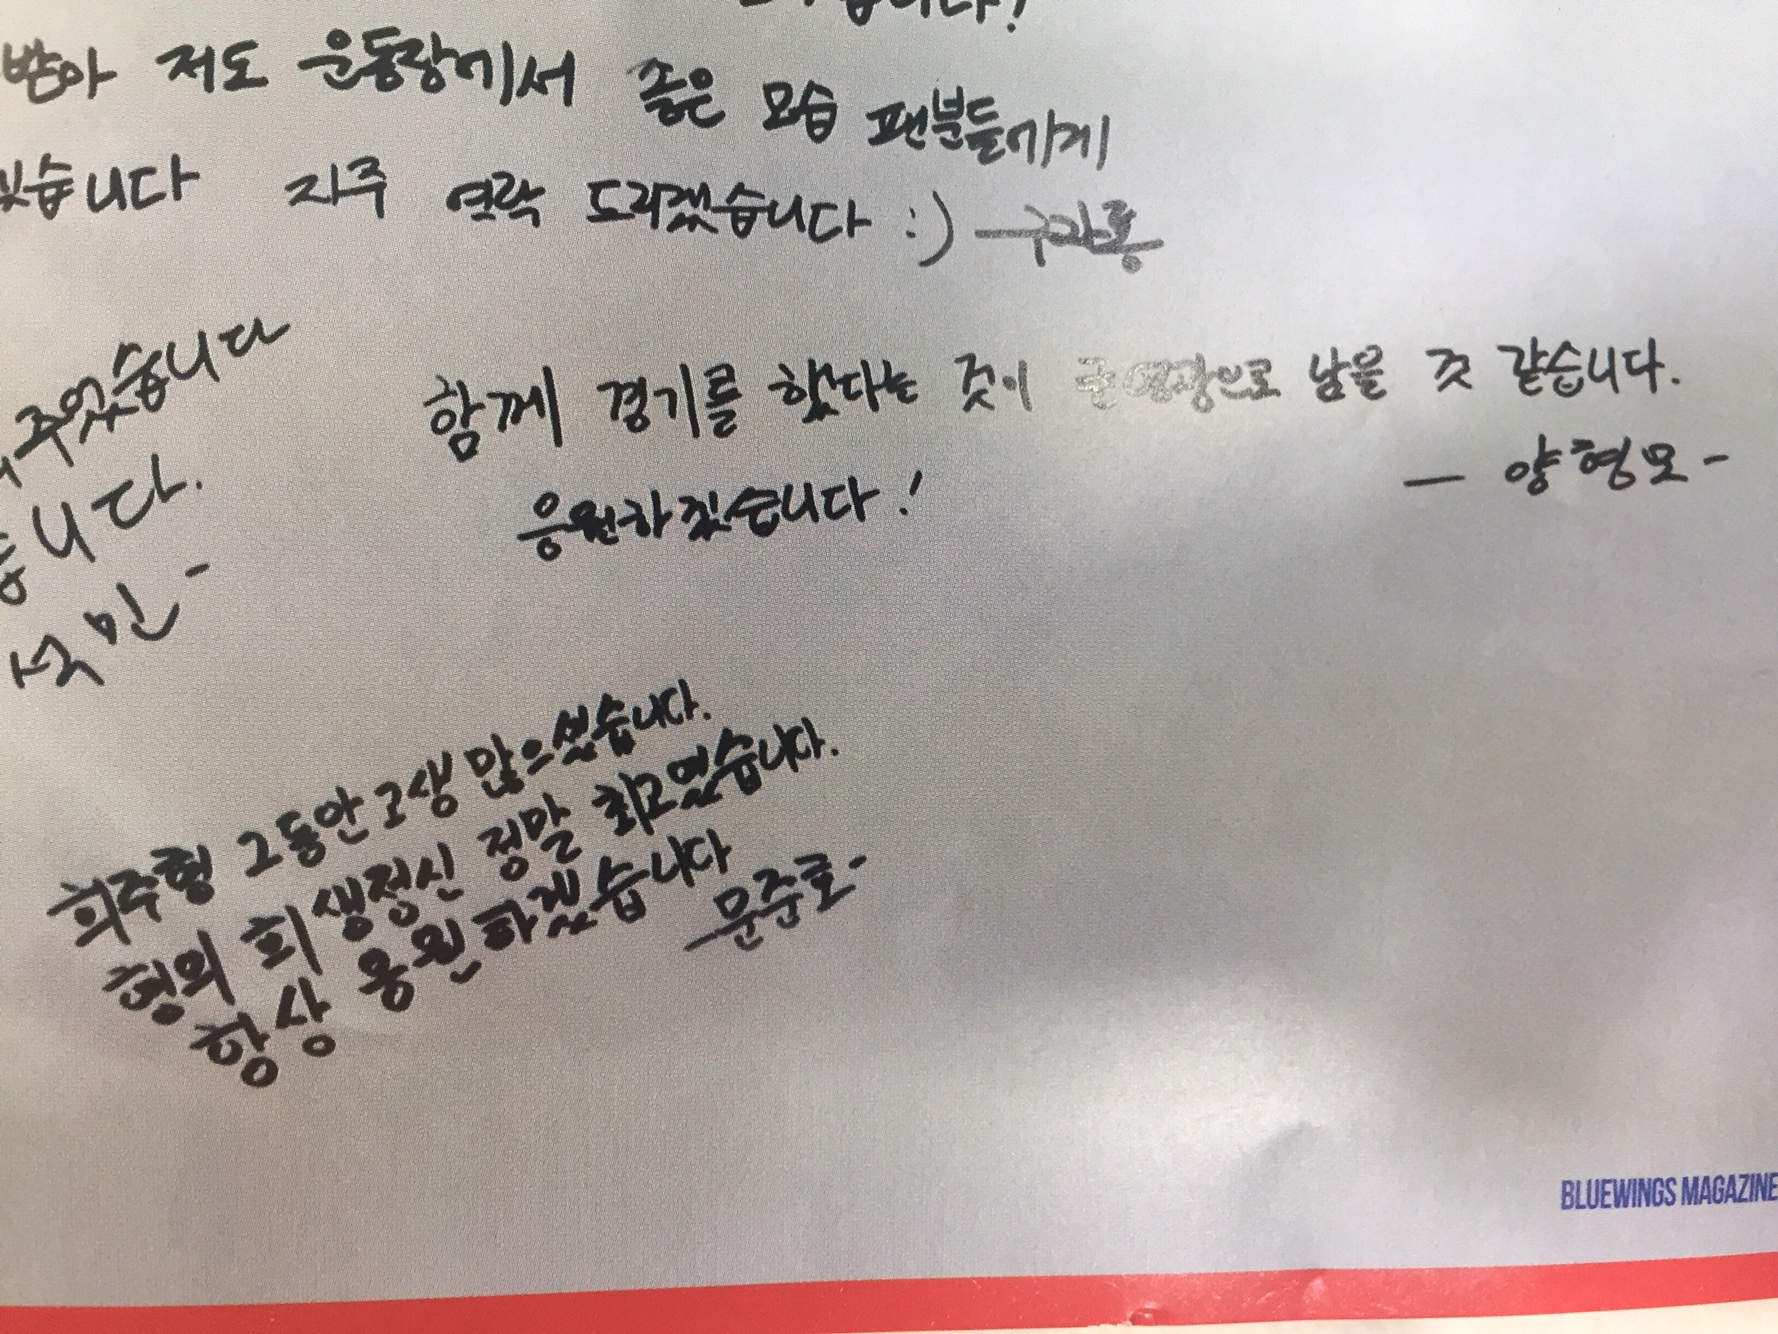 받아 저도 운동장에서 좋은 모습 팬분들에게
있습니다 자주 연락 드리겠습니다 :) -구자룡
주었습니다
니다.
석민-
함께 경기를 했다는 것이 큰 영광으로 남을 것 같습니다.
응원하겠습니다!
- 양형모 -
희주형 그동안 고생 많으셨습니다.
형의 희생정신 정말 최고였습니다.
항상 응원하겠습니다
-문준호-
BLUEWINGS MAGAZINE